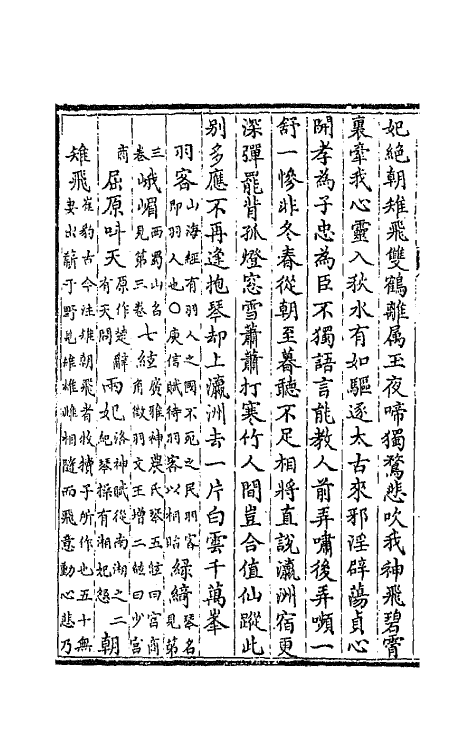 妃絶朝雉飛雙鶴離属玉夜啼獨鶖悲吹我神飛碧霄
裏牽我心靈入狄水有如驅逐太古來邪淫辟蕩貞心
開孝為子忠為臣不獨語言能教人前弄嘯後弄嚬一
舒一慘非冬春從朝至暮聽不足相將直說瀛洲宿更
深彈罷背孤燈窓雪蕭蕭打寒竹人間豈合值仙蹤此
别多應不再逢抱琴却上瀛洲去一片白雲千萬峯
羽客山海經有羽人之國不死之民羽客即羽人也○庾信賦待羽客以相貽緑綺琴名見第
三卷峨嵋西蜀山名見第三卷七絃廣雅神農氏琴五絃曰宫商角徵羽文王增二絃曰少宫
商屈原叫天原作楚辭有天問兩妃洛神賦從南湘之二妃琴操有湘妃怨朝
雉飛崔豹古今注雉朝飛者牧犢子所作也五十無妻出薪于野見雉雄雌相隨而飛意動心悲乃